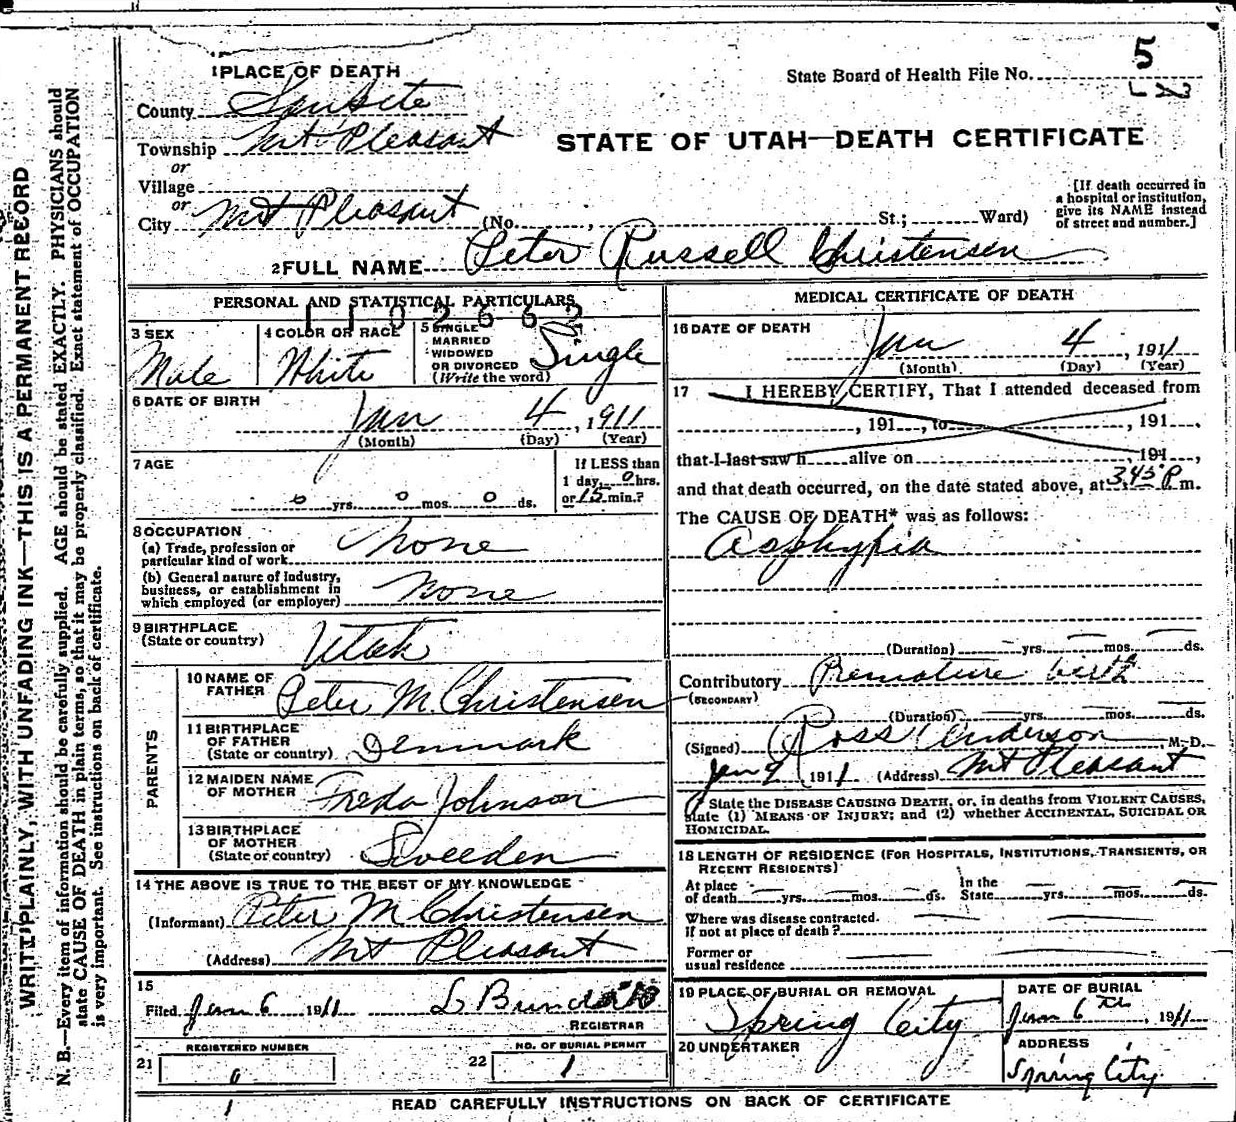 5
1 PLACE OF DEATH
State Board of Health File No.
County Sanpete
Township Mt. Pleasant
STATE OF UTAH—DEATH CERTIFICATE
or
Village
or
City Mt Pleasant (No. , St.; Ward)
[If death occurred in a hospital or institution, give its NAME instead of street and number.]
2 FULL NAME Peter Russell Christensen
PERSONAL AND STATISTICAL PARTICULARS
3 SEX
Male
4 COLOR OR RACE
White
5 SINGLE MARRIED WIDOWED OR DIVORCED (Write the word)
Single
6 DATE OF BIRTH
Jan 4, 1911
(Month) (Day) (Year)
7 AGE
0 yrs. 0 mos. 0 ds.
If LESS than
1 day, 0 hrs.
or 15 min.?
8 OCCUPATION
(a) Trade, profession or particular kind of work None
(b) General nature of industry, business, or establishment in which employed (or employer) None
9 BIRTHPLACE
(State or country) Utah
PARENTS
10 NAME OF FATHER Peter M. Christensen
11 BIRTHPLACE OF FATHER (State or country) Denmark
12 MAIDEN NAME OF MOTHER Freda Johnson
13 BIRTHPLACE OF MOTHER (State or country) Sweeden
14 THE ABOVE IS TRUE TO THE BEST OF MY KNOWLEDGE
(Informant) Peter M Christensen
(Address) Mt Pleasant
15
Filed Jan 6 1911
REGISTRAR
REGISTERED NUMBER
21
NO. OF BURIAL PERMIT
22 1
MEDICAL CERTIFICATE OF DEATH
16 DATE OF DEATH
Jan 4, 1911
(Month) (Day) (Year)
17 I HEREBY CERTIFY, That I attended deceased from
, 191 , to , 191 ,
that I last saw h alive on , 191 ,
and that death occurred, on the date stated above, at 3.45 P m.
The CAUSE OF DEATH* was as follows:
Asphyxia
(Duration) yrs. mos. ds.
Contributory Premature birth
(SECONDARY)
(Duration) yrs. mos. ds.
(Signed) Ross Anderson M.D.
Jan 9 1911 (Address) Mt Pleasant
State the DISEASE CAUSING DEATH, or, in deaths from VIOLENT CAUSES,
state (1) MEANS OF INJURY; and (2) whether ACCIDENTAL, SUICIDAL OR
HOMICIDAL.
18 LENGTH OF RESIDENCE (FOR HOSPITALS, INSTITUTIONS, TRANSIENTS, OR
RECENT RESIDENTS)
At place of death yrs. mos. ds. In the State yrs. mos. ds.
Where was disease contracted.
if not at place of death?
Former or
usual residence
19 PLACE OF BURIAL OR REMOVAL
Spring City
DATE OF BURIAL
Jan 6th, 1911
20 UNDERTAKER
ADDRESS
Spring City
READ CAREFULLY INSTRUCTIONS ON BACK OF CERTIFICATE
WRITE PLAINLY, WITH UNFADING INK—THIS IS A PERMANENT RECORD
N. B.—Every item of information should be carefully supplied. AGE should be stated EXACTLY. PHYSICIANS should
state CAUSE OF DEATH in plain terms, so that it may be properly classified. Exact statement of OCCUPATION
is very important. See instructions on back of certificate.